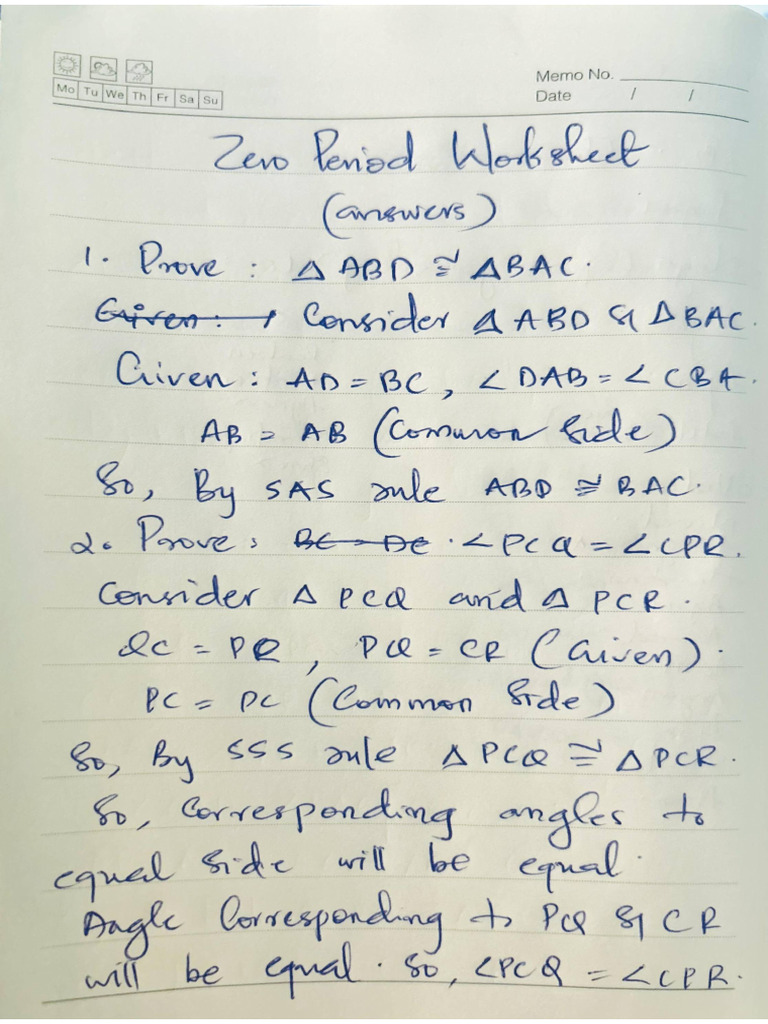 Memo No.
Mo Tu We Th Fr Sa Su
Date / /
Zero Period Worksheet
(answers)
1. Prove : △ ABD ≅ △BAC.
Given: Consider △ ABD & △ BAC.
Given : AD = BC, ∠ DAB = ∠ CBA.
AB = AB (Common Side)
So, By SAS rule ABD ≅ BAC.
2. Prove: BC = DC . ∠PCQ = ∠CPR.
Consider △ PCQ and △ PCR.
QC = PR, PQ = CR (Given).
PC = PC (Common Side)
So, By SSS rule △ PCQ ≅ △ PCR.
So, Corresponding angles to
equal Side will be equal.
Angle Corresponding to PQ & CR
will be equal. So, ∠PCQ = ∠CPR.